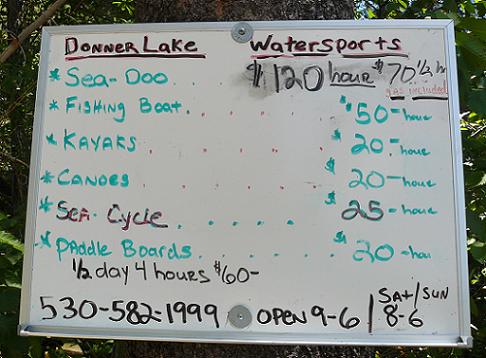 Donner Lake Watersports
* Sea-Doo $120 hour $70 1/2 hr
gas included
* Fishing Boat. . . . . . $50-hour
* Kayaks . . . . . . $20-hour
* Canoes . . . . . . $20-hour
* Sea-Cycle . . . . . $25-hour
* Paddle Boards. . . . . $20-hour
1/2 day 4 hours $60-
530-582-1999 OPEN 9-6 | SAt/SUN 8-6